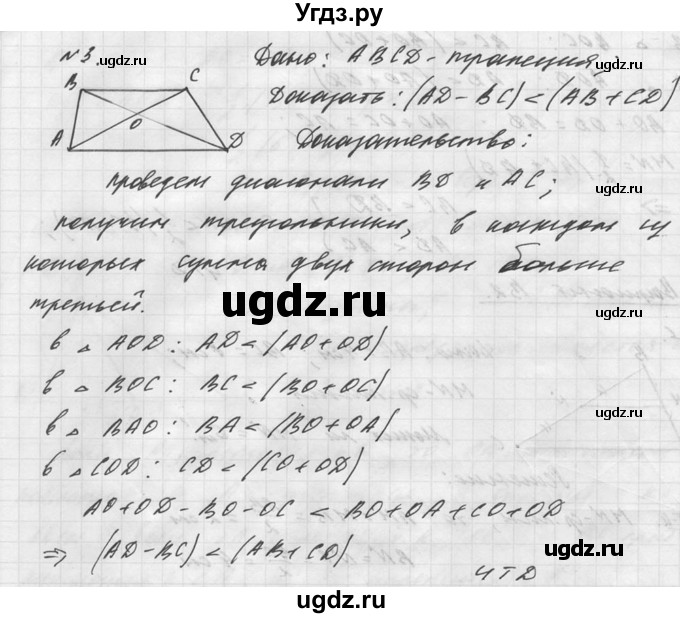 Угдз.ру
№3.
ugdz.ru
Дано: ABCD - трапеция
B C
Доказать: (AD - BC) < (AB + CD)
O
A D
Доказательство:
проведем диагонали BD и AC;
ugdz.ru
получим треугольники, в каждом из
которых сумма двух сторон больше
третьей.
ugdz.ru
ugdz.ru
в △ AOD: AD < (AO + OD)
в △ BOC: BC < (BO + OC)
в △ BAO: BA < (BO + OA)
ugdz.ru
в △ COD: CD < (CO + OD)
AO + OD - BO - OC < BO + OA + CO + OD
⇒ (AD - BC) < (AB + CD)
ugdz.ru
ЧТД
ugdz.ru